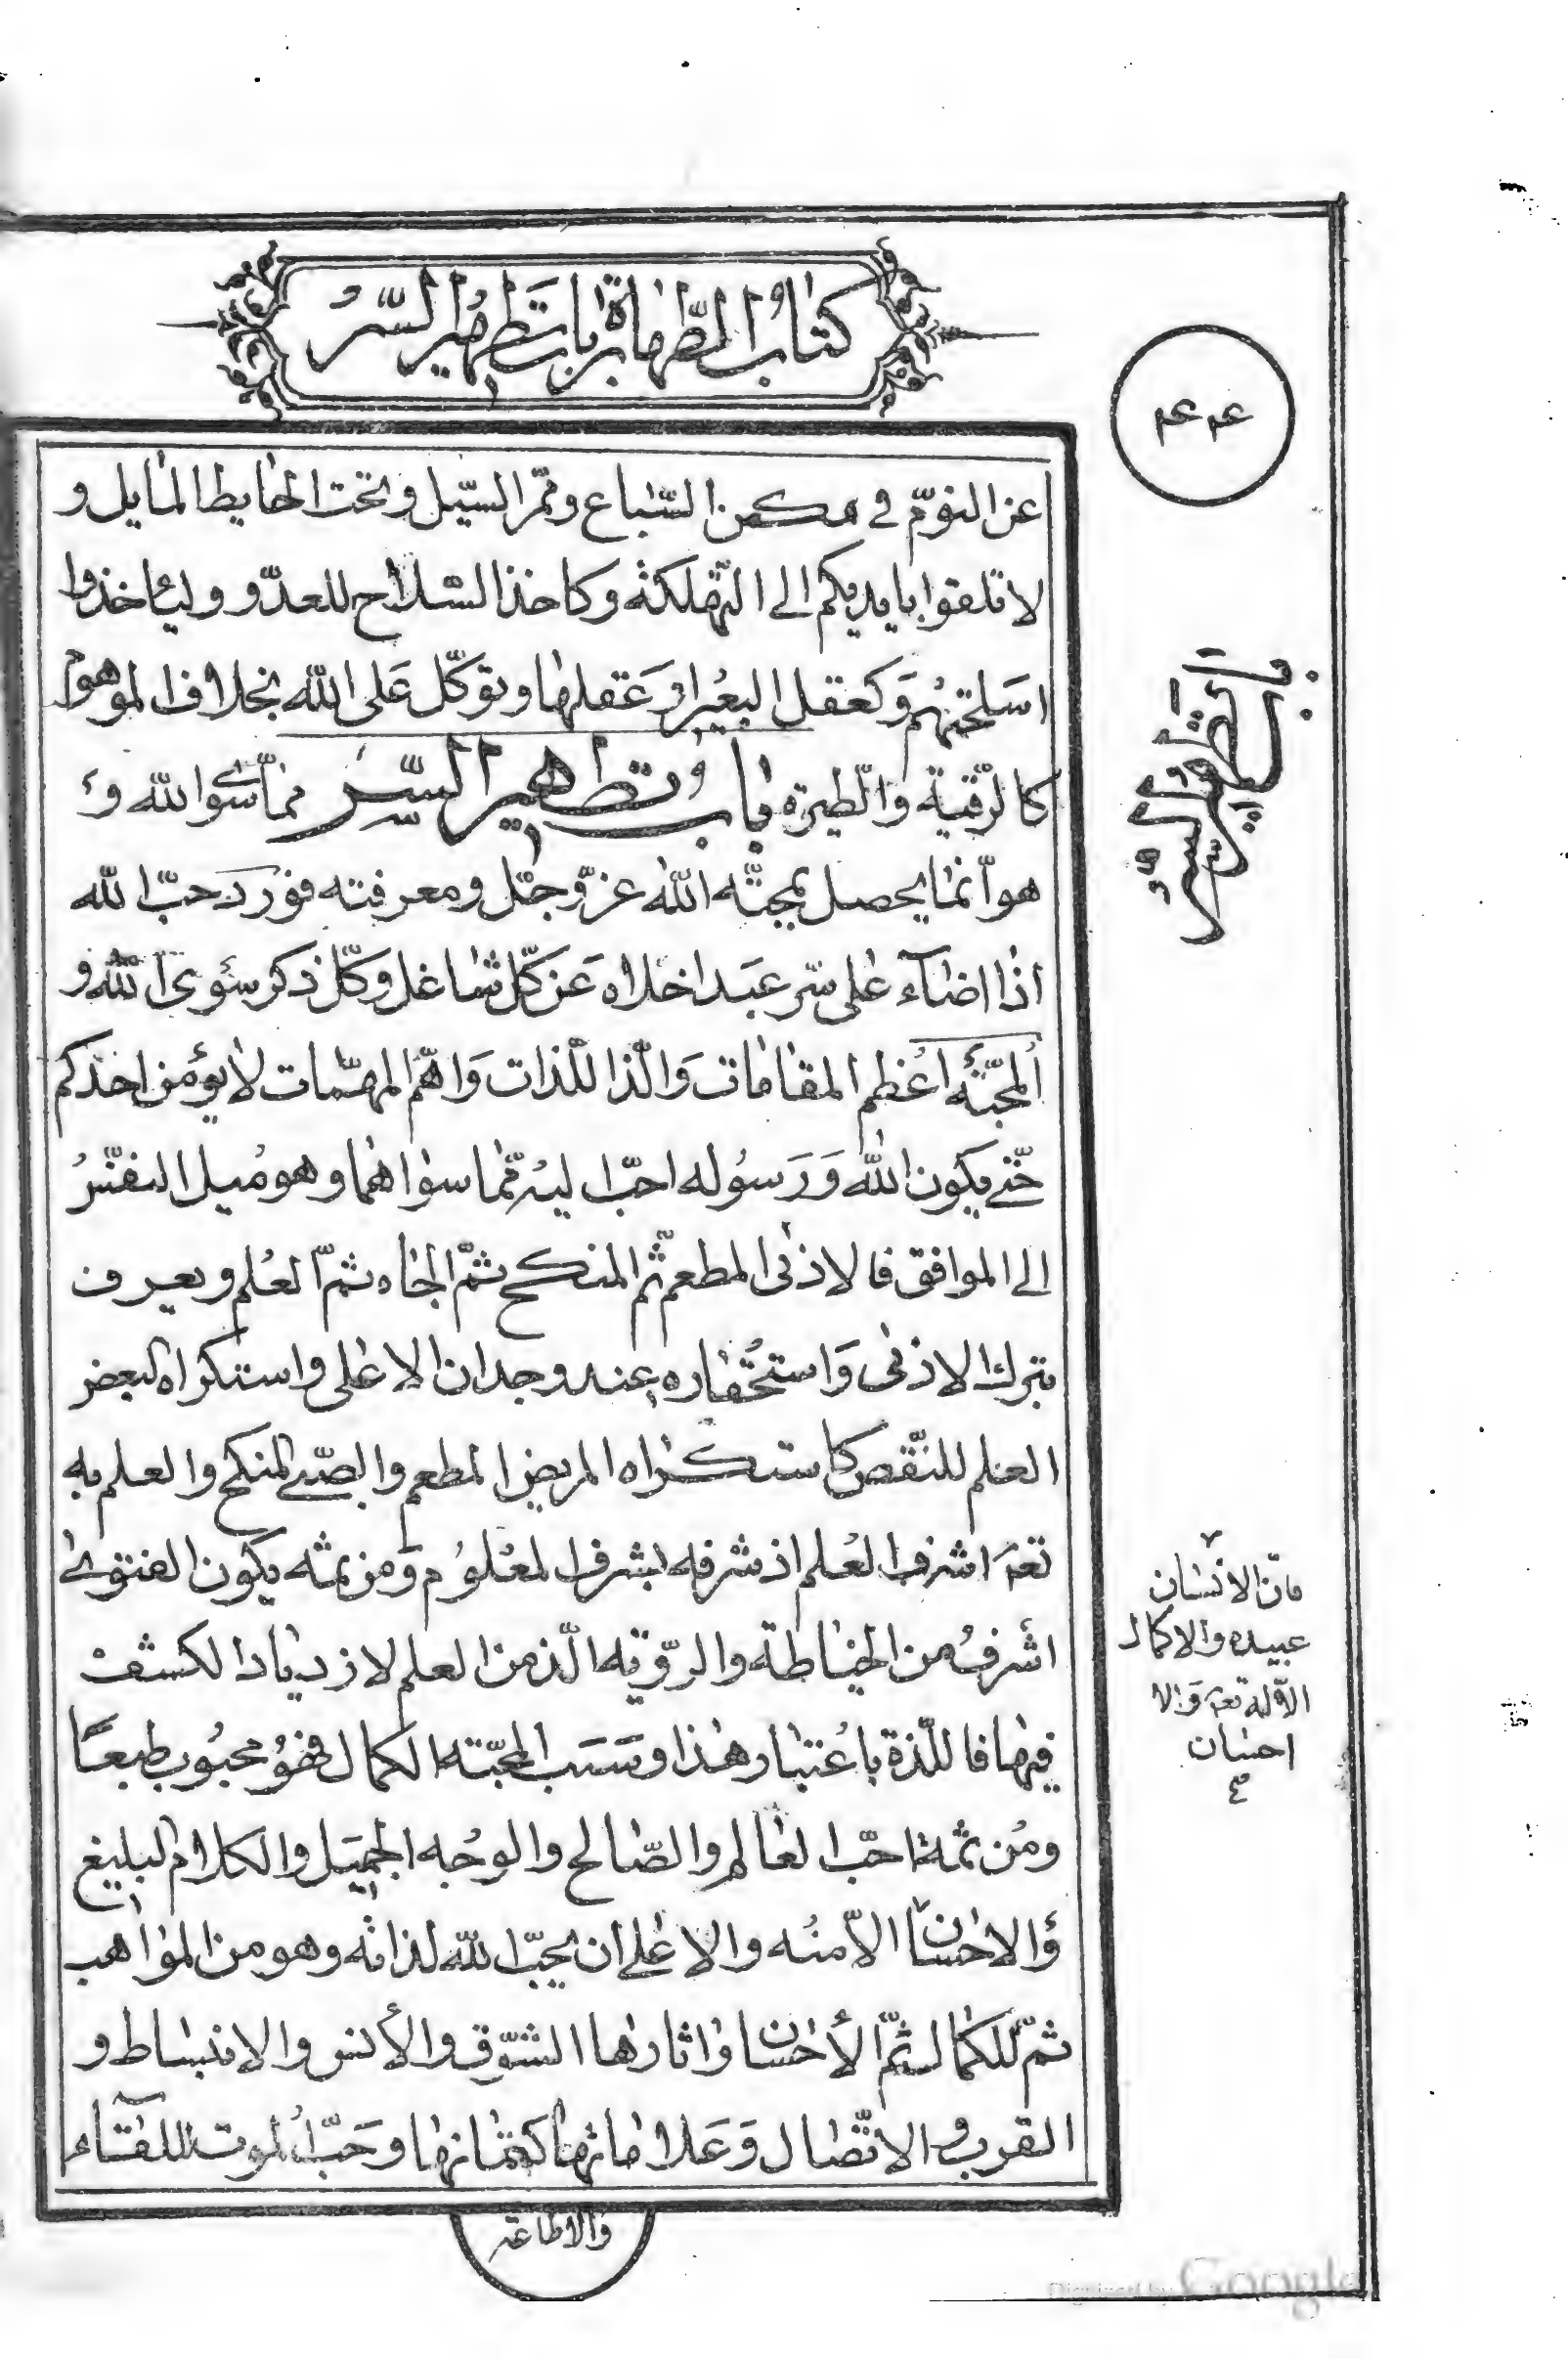 كتاب الطهارة باب تطهير السر
٤٤
عن النوم في مكمن السّباع وممرّ السيّل وتحت الحايط المايل و
لا تلقوا بايديكم الى التّهلكة وكاخذ السّلاح للعدّو ولياخذوا
اسلحتهم وكعقل البعير وعقلها وتوكّل على الله بخلاف الموهوم
كالرّقية والطيرة باب تطهير السّر ممّا سوى الله و
هو انّما يحصل بمحبّة الله عزّ وجلّ ومعرفته فورد حبّ الله
اذا اضآء على سّر عبد اخلاه عن كّل شاغل وكّل ذكر سوى الله و
المحبّة اعظم المقامات والّذ اللّذات واهمّ المهمّات لا يؤمن احدكم
حتّى يكون الله ورسوله احبّ اليه ممّا سواهما وهو ميل النفس
الى الموافق فالادنى المطعم ثم المنكح ثمّ الجاه ثمّ العلم ويعرف
بترك الادنى واستحقاره عند وجدان الاعلى واستكراه البعض
العلم للنّقص كاستكراه المريض المطعم والصّبي المنكح والعلم به
تعه اشرف العلم اذ شرفه بشرف المعلوم ومن ثمه يكون الفتوى
اشرف من الخياطة والرّوية الّذ من العلم لازدياد الكشف
فيها فاللّذة باعتبار هذا وسبب المحبّة الكمال فهو محبوب طبعا
ومن ثمة احبّ العالم والصّالح والوجه الجميل والكلام البليغ
والاحسان الّا منه والاعلى ان يحبّ الله لذاته وهو من المواهب
ثمّ للكمال ثمّ الأحسان واثارها الشّوق والأنس والانبساط و
القرب والاتّصال وعلاماتها كتمانها وحبّ الموت للقآء
والاطاعة
باب تطهير السر
فانّ الانسان
عبيده والاكمال
الاّ له تعه والا
احسان